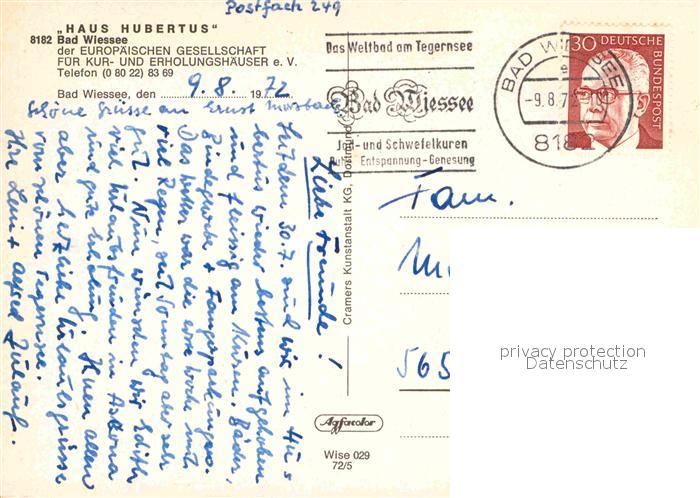 Postfach 249
„HAUS HUBERTUS“
8182 Bad Wiessee
der EUROPÄISCHEN GESELLSCHAFT
FÜR KUR- UND ERHOLUNGSHÄUSER e. V.
Telefon (0 80 22) 83 69
Bad Wiessee, den 9.8. 1972
schöne Grüsse an Ernst
Liebe Freunde!
Seit dem 30.7. sind wir im Hus
bertus wieder bestens aufgehoben
und fleissig am Kuren. Bäder,
Bindegewebe +
Das Wetter war die erste Woche mit
viel Regen, seit Sonntag aber sehr
gut. Nun wünschen wir Edith
viel Urlaubsfreuden in Ascona
und gute Erholung. Ihnen allen
aber herzliche Urlaubsgrüsse
vom schönen Tegernsee.
Ihre Leni + Alfred
Cramers Kunstanstalt KG, Dortmund
Das Weltbad am Tegernsee
Bad Wiessee
Jod- und Schwefelkuren
Ruhe - Entspannung - Genesung
BAD WIESSEE
-9.8.72
8182
30 DEUTSCHE BUNDESPOST
Fam.
565
privacy protection
Datenschutz
Agfacolor
Wise 029
72/5